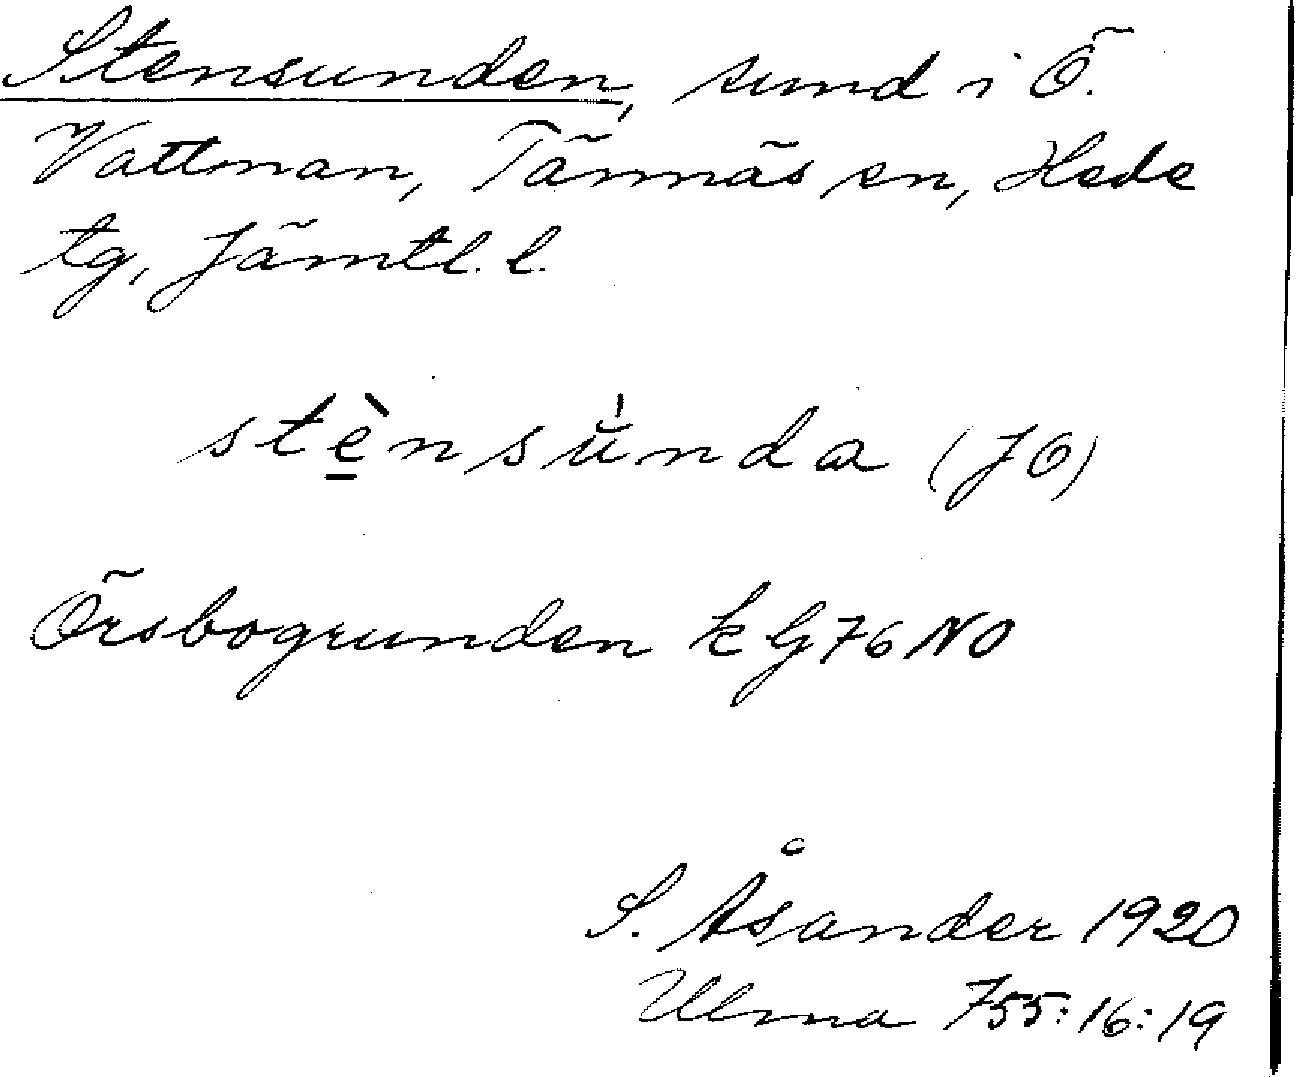 Stensunden, sund i Ö.
Vattnan, Tännäs sn, Hede
tg, Jämtl. l.
stè̱nsùnda (JÖ)
Örsbogrunden k G76NO
S. Åsander 1920
Ulma 755:16:19